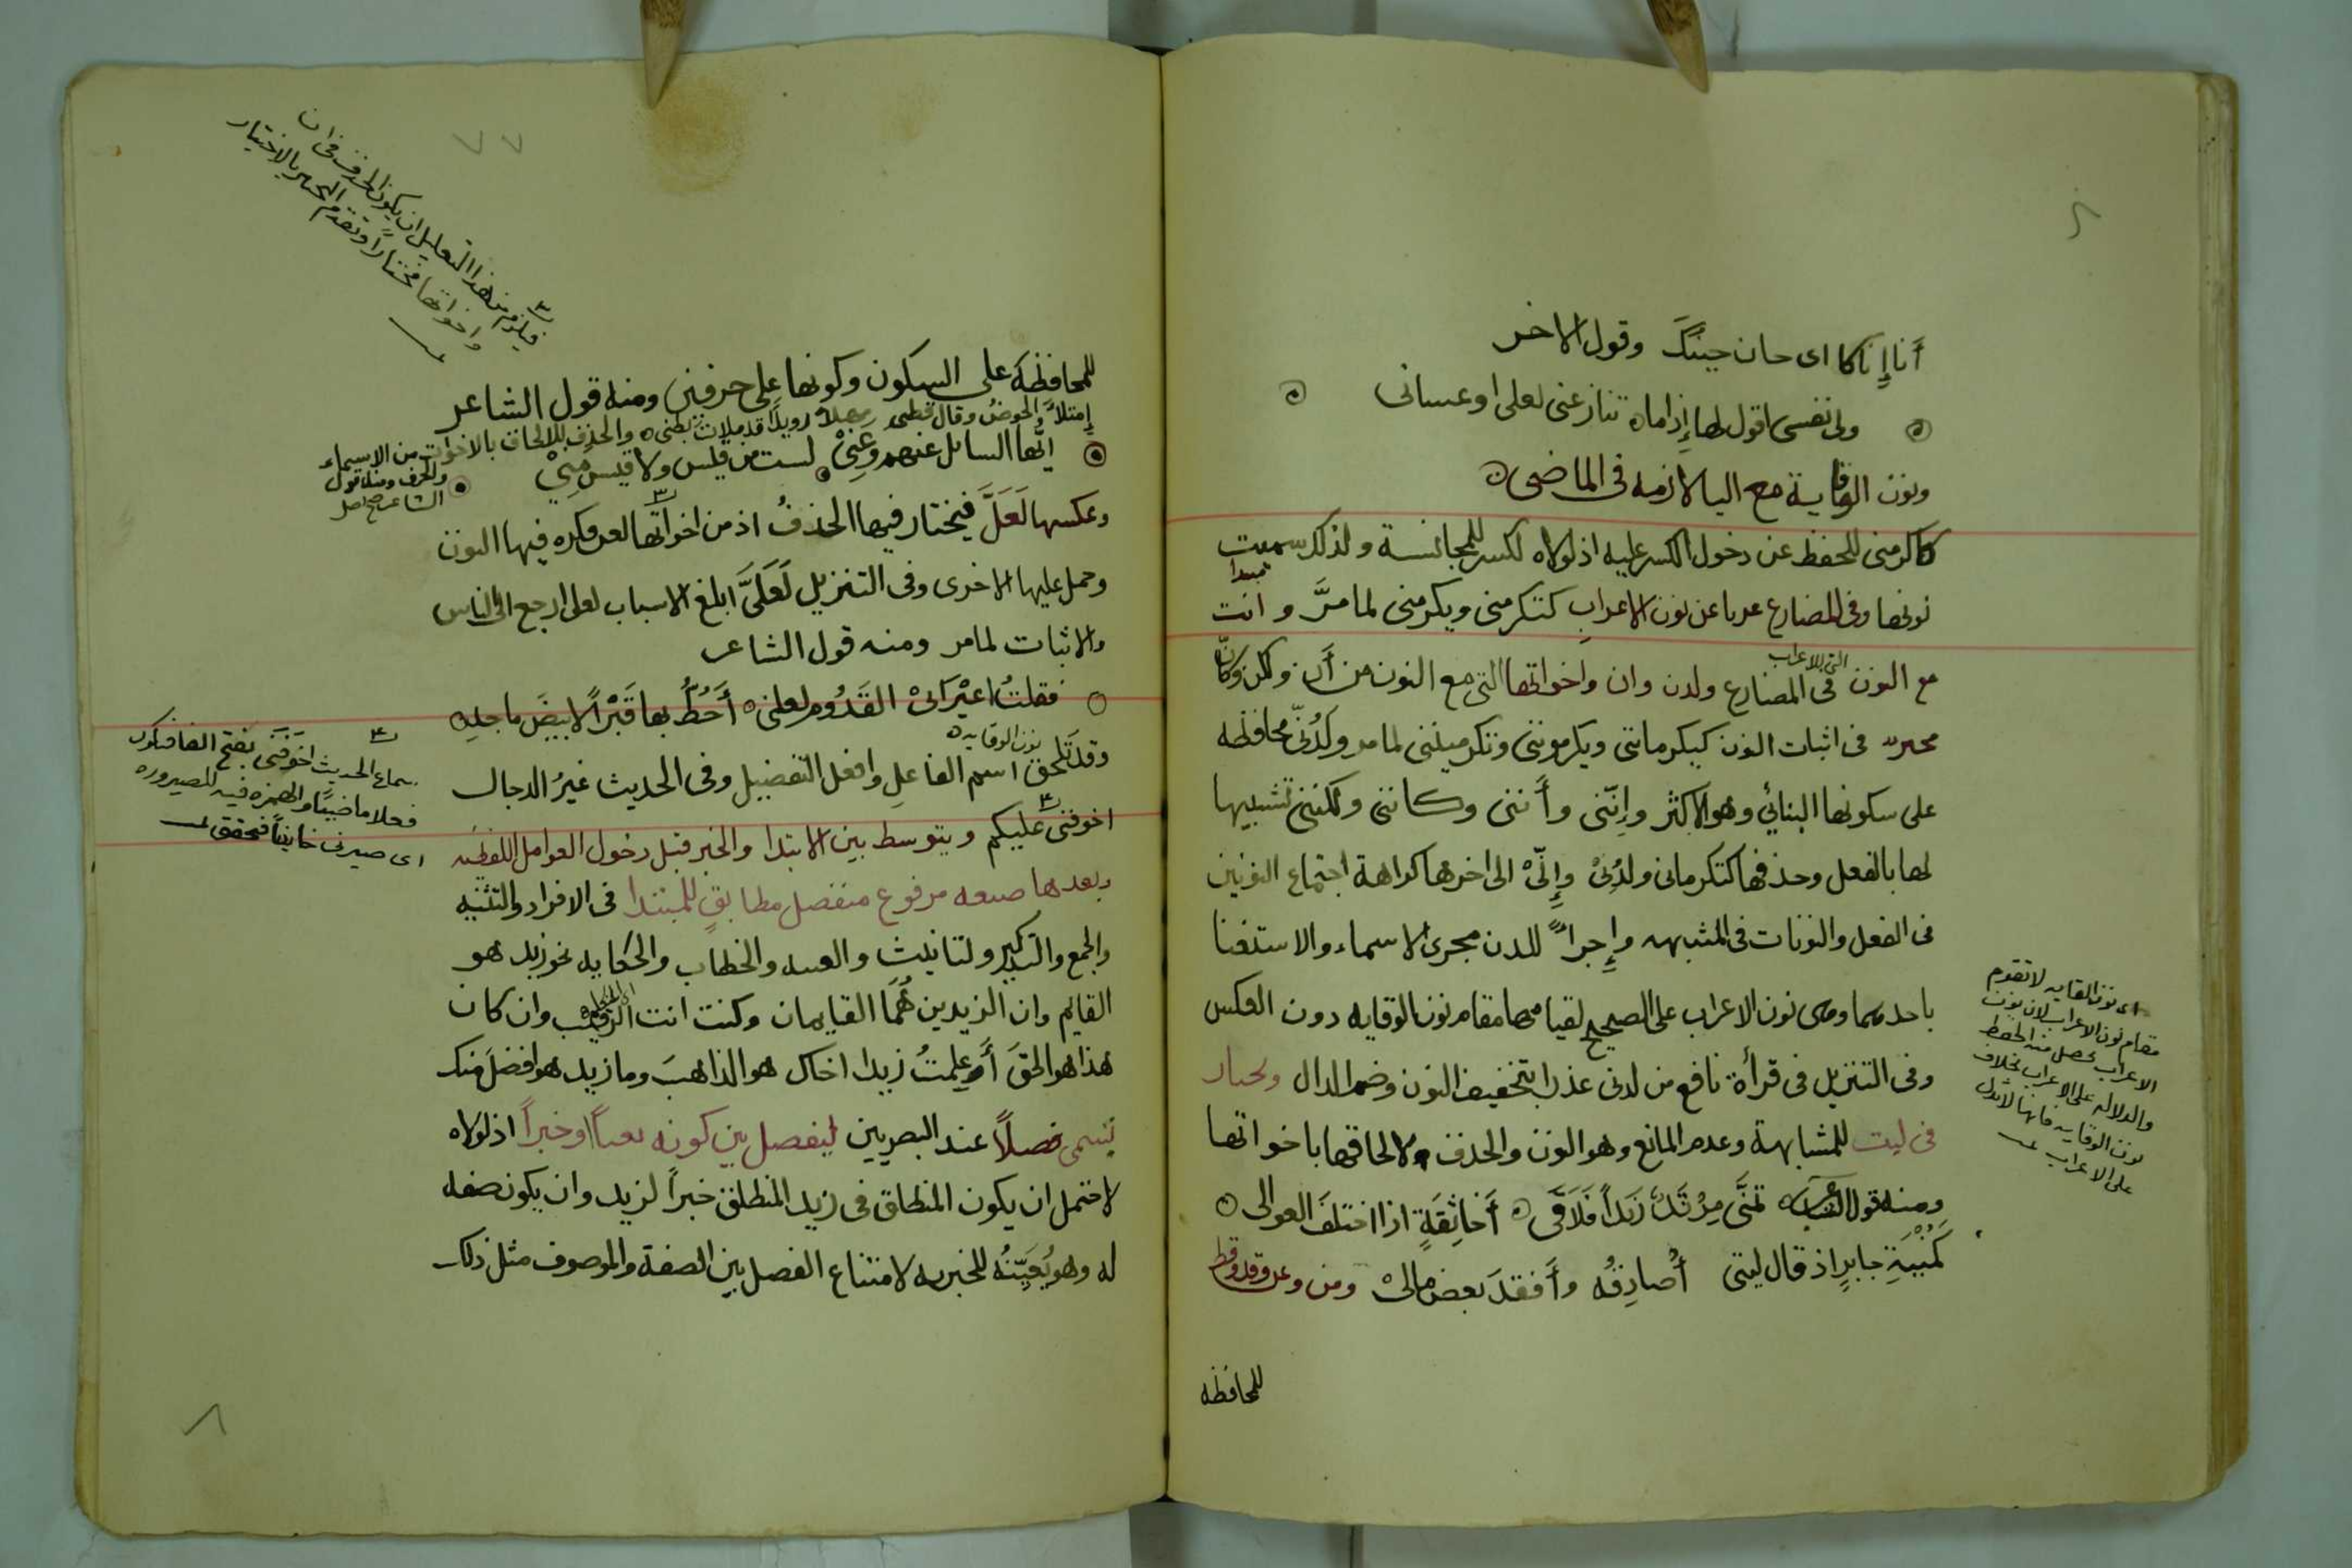 أنا إناكا اى حان حينك وقول الاخر
ولى نفسى اقول لها إذا ما تنازعنى لعلى او عسانى
ونون الوقاية مع اليا لازمه فى الماضى
كاكرمنى للحفظ عن دخول الكسر عليه اذ لولاه لكسر للمجانسة ولذلك سميت
نونها وفى المضارع عريا عن نون الاعراب كتكرمنى ويكرمنى لما مرَّ وانت
مبتدا
مع النون فى المضارع ولدن وان واخواتها التى مع النون من أن ولكن وكأنّ
التى للاعراب
مخير فى اثبات النون كيكرماننى ويكرموننى وتكرميننى لما مر وكدُنّى محافظه
على سكونها البنائي وهو الاكثر وإنّنى وأننى وكاننى ولكننى تشبيها
لها بالفعل وحذفها كتكرمانى ولدُنِى وإنّى الى اخرها كراهة اجتماع النونين
فى الفعل والنونات فى المشبهه وإجراءً للدن مجرى الاسماء والاستغنا
باحدهما وهى نون الاعراب على الصحيح لقيامها مقام نون الوقايه دون العكس
وفى التنزيل فى قرأة نافع من لدنى عذرا بتخفيف النون وضم الدال ويختار
فى ليت للمشابهة وعدم المانع وهو النون والحذف لالحاقها باخواتها
ومنه قول تمنَّى مِزْيَدٌ زَيْداً فَلَاقَى أخا ثِقَةٍ اذا اختلفَ العوالى
كَمُنْيَةِ جابرٍ اذ قال ليتى أُصادِفُه وأَفقدَ بعض مالى ومن وعن وقد وقط
للمحافظه
اى نون الوقايه لا تقوم
مقام نون الاعراب لان نون
الاعراب يحصل منه الحفظ
والدلاله على الاعراب بخلاف
نون الوقايه فانها لا تدل
على الاعراب
٧٧
فيلزم من هذا التعليل ان يكون الحذف فى ان
واخواتها مختارا وتقدم التخيير بالاختيار
للمحافظة على السكون وكونها على حرفين ومنه قول الشاعر
إمتلأ الحوضُ وقال قطنى مهلاً رويداً قد ملأت بطنى والحذف للالحاق بالاخوات من الاسماء
والحرف ومنه قول
الشاعر صح اصل
ايُّها السائل عنهم وعَنِىْ لست من قيس ولا قيس مِنِىْ
وعكسها لَعَلَّ فيختار فيها الحذفُ اذ من اخواتها لعن فكره فيها النون
وحمل عليها الاخرى وفى التنزيل لَعَلىَّ ابلغ الاسباب لعلى ارجع الى الناس
والاثبات لما مر ومنه قول الشاعر
فقلتُ اعيْرَانىْ القَدُوم لعلنى أَخُطُّ بها قَبْراً لابيضَ ماجدِ
وقد تلحق اسم الفاعلِ وافعل التفضيل وفى الحديث غيرُ الدجال
نون الوقايه
اخوفنى عليكم ويتوسط بين الابتدا والخبر قبل دخول العوامل اللفظيه
وبعدها صيغه مرفوع منفصل مطابقٍ للمبتدا فى الافراد والتثنيه
والجمع والتذكير والتانيث والغيبه والخطاب والحكايه نحو زيد هو
القايم وان الزيدين هُمَا القايمان وكنت انت الرقيب وان كان
هذا هو الحقَ أَوعلمتُ زيدا اخاك هو الذاهبَ وما زيد هو افضلَ منك
يسمى فصلاً عند البصريين ليفصل بين كونه نعتاً وخبراً اذ لولاه
لاحتمل ان يكون المنطلق فى زيد المنطلق خبراً لزيد وان يكون صفه
له وهو يُعَيِّنُه للخبريه لامتناع الفصل بين الصفة والموصوف مثل ذلك
سماع الحديث اخوَفَنِى بفتح الفا فيكون
فعلا ماضيًا والهمزه فيه للصيروره
اى صيرنى خايفاً فحقق